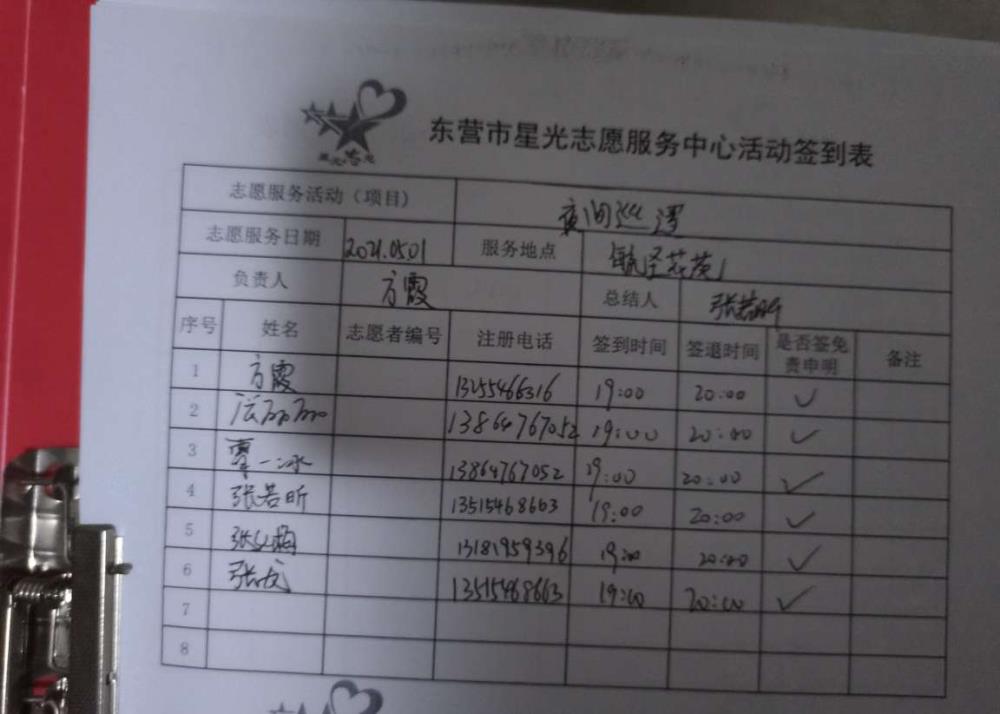 东营市星光志愿服务中心活动签到表
志愿服务活动（项目） 夜间巡逻
志愿服务日期 2021.05.01 服务地点
负责人 方霞 总结人 张若昕
序号 姓名 志愿者编号 注册电话 签到时间 签退时间 是否签免责申明 备注
1 方霞 13255466316 19:00 20:00 ✓
2 13864767052 19:00 20:00 ✓
3 覃一冰 13864767052 19:00 20:00 ✓
4 张若昕 13515468663 19:00 20:00 ✓
5 13181959396 19:00 20:00 ✓
6 张成 13515468663 19:00 20:00 ✓
7
8